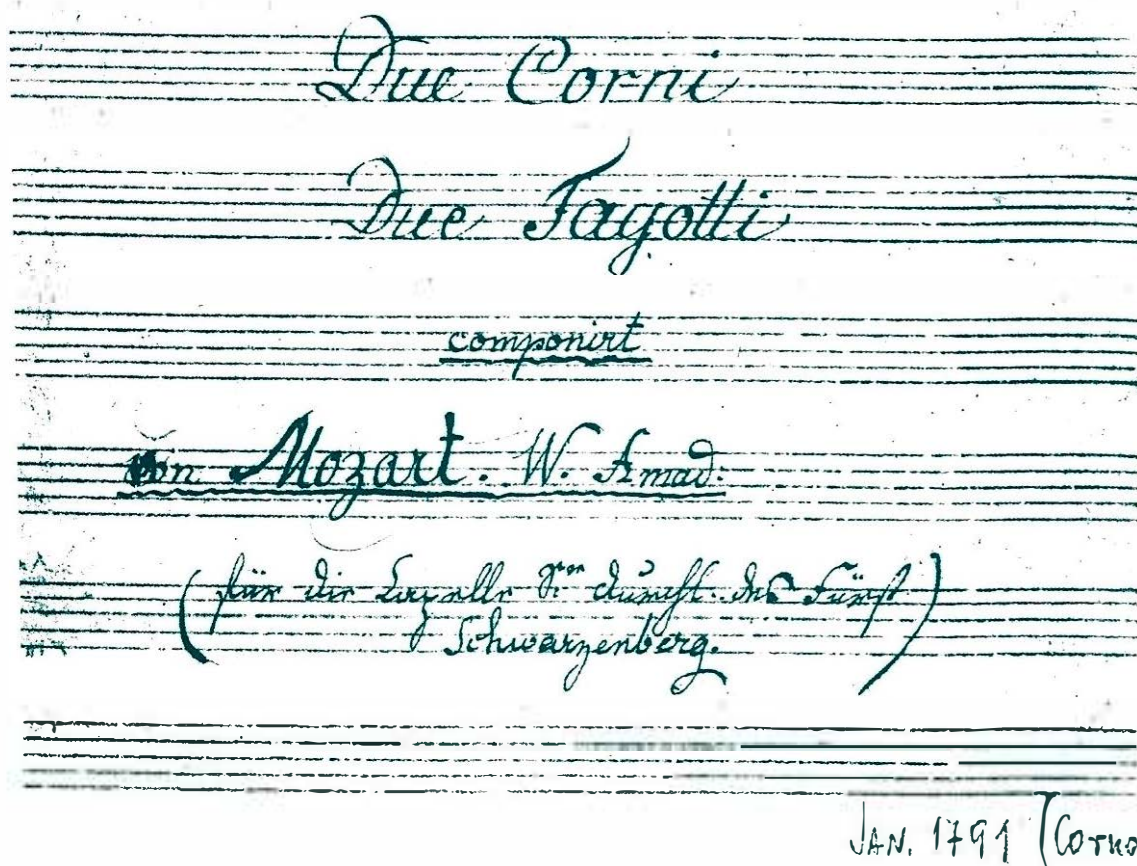 Due Corni
Due Fagotti
componirt
von Mozart. W. Amad:
(für die Capelle Sr durchl. des Fürst
Schwarzenberg.)
JAN. 1791 (Corno